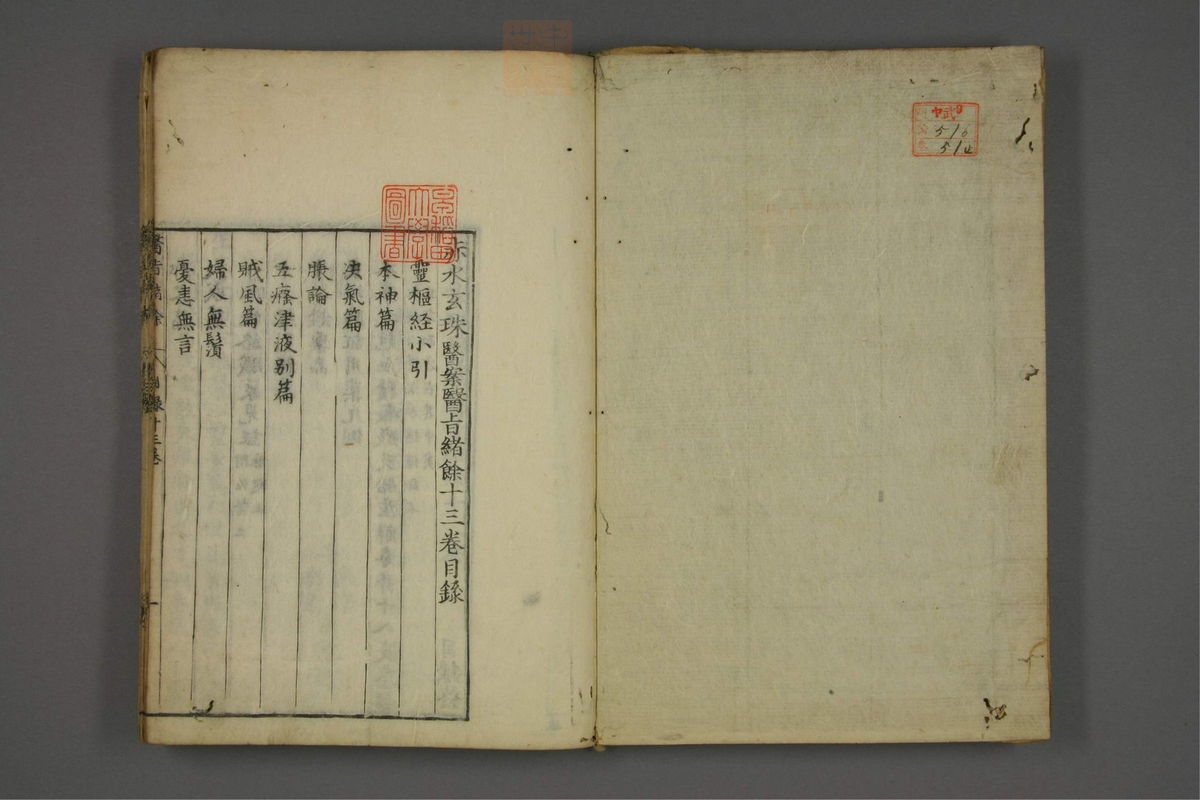 ヤ09
516
514
早稲田大學圖書
赤水玄珠醫案醫旨緒餘十三卷目錄
靈樞経小引
本神篇
决氣篇
脹論
五癃津液别篇
賊風篇
婦人無鬚
憂恚無言
醫旨緒餘
目錄十三卷
一